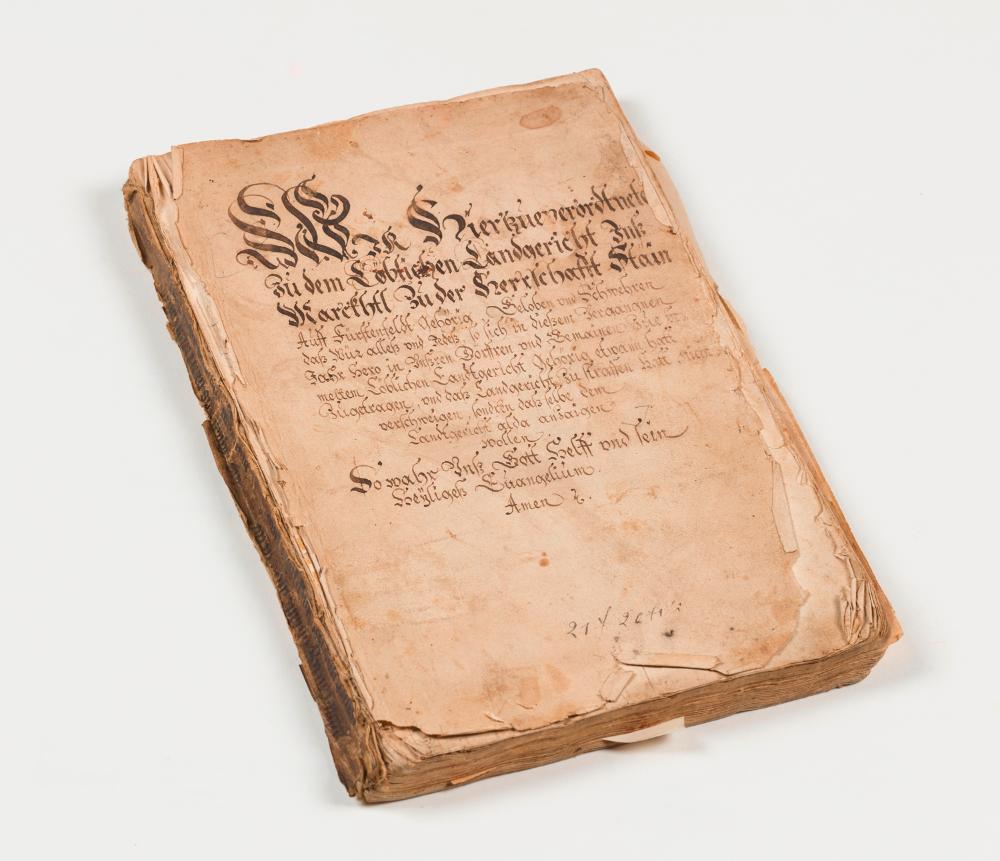 WIR Hierzue verordtnete
zu dem Löblichen Landgericht Inß
Marckhtl zu der Herrschafft Stain
Auff Fürstenfeldt Gehörig Geloben und Schwehren
daß Wür alleß und Jedeß, so sich in dießem Vergangnen
Jahr hero in Unßren Dörffren und Gemainen
meltem Löblichen Landtgericht Gehörig etwann hett
Zugetragen, und daß Landgericht zu straffen hatt nicht
verschweigen, sondren daß selbe dem
Landtgericht alda anzaigen
wollen
So wahr Unß Gott Helff und sein
Heÿligeß Euangelium.
Amen